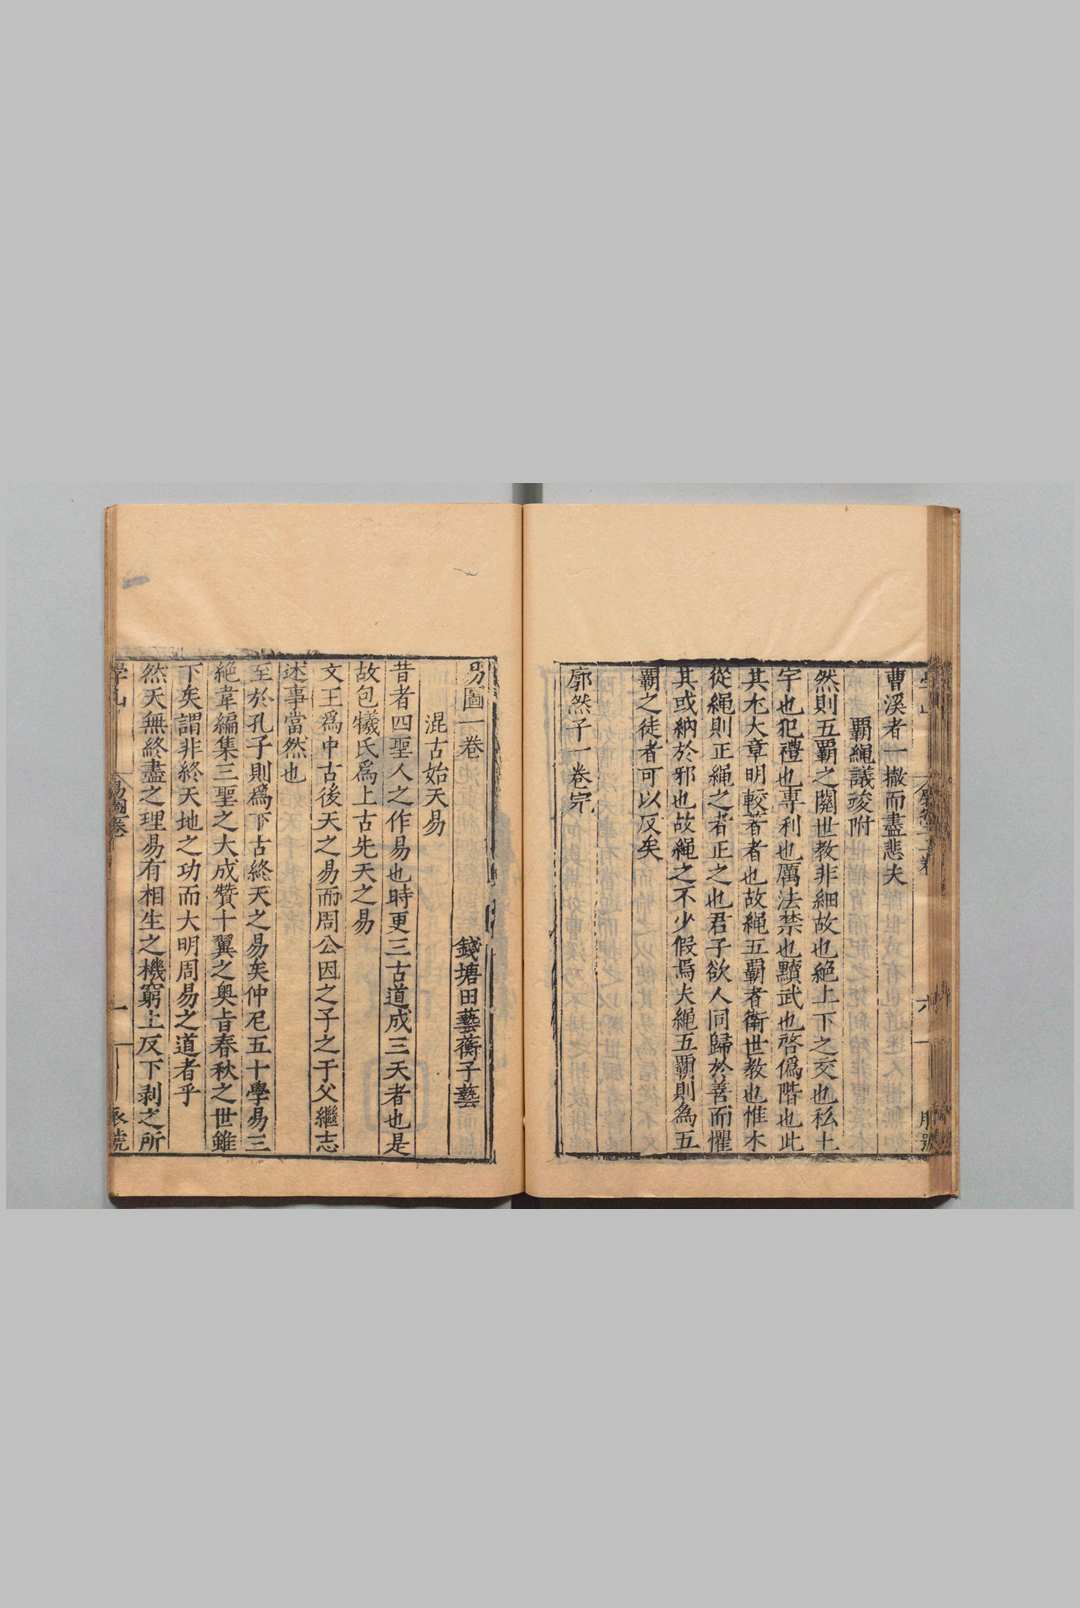 曹溪者一撤而盡悲夫
覇繩議竣附
然則五覇之闗世教非細故也絶上下之交也私土
宇也犯禮也専利也厲法禁也黷武也啓僞階也此
其大章明較著者也故繩五覇者衛世教也惟木
從繩則正繩之者正之也君子欲人同歸於善而懼
其或納於邪也故繩之不少假焉夫繩五覇則為五
覇之徒者可以反矣
廓然子一卷完
易圖一卷
錢塘田藝蘅子藝
混古始天易
昔者四聖人之作易也時更三古道成三天者也是
故包犧氏爲上古先天之易
文王爲中古後天之易而周公因之子之于父繼志
述事當然也
至於孔子則爲下古終天之易矣仲尼五十學易三
絶韋編集三聖之大成贊十翼之奥旨春秋之世雖
下矣謂非終天地之功而大明周易之道者乎
然天無終盡之理易有相生之機窮上反下剥之所
學山
易圖卷
一